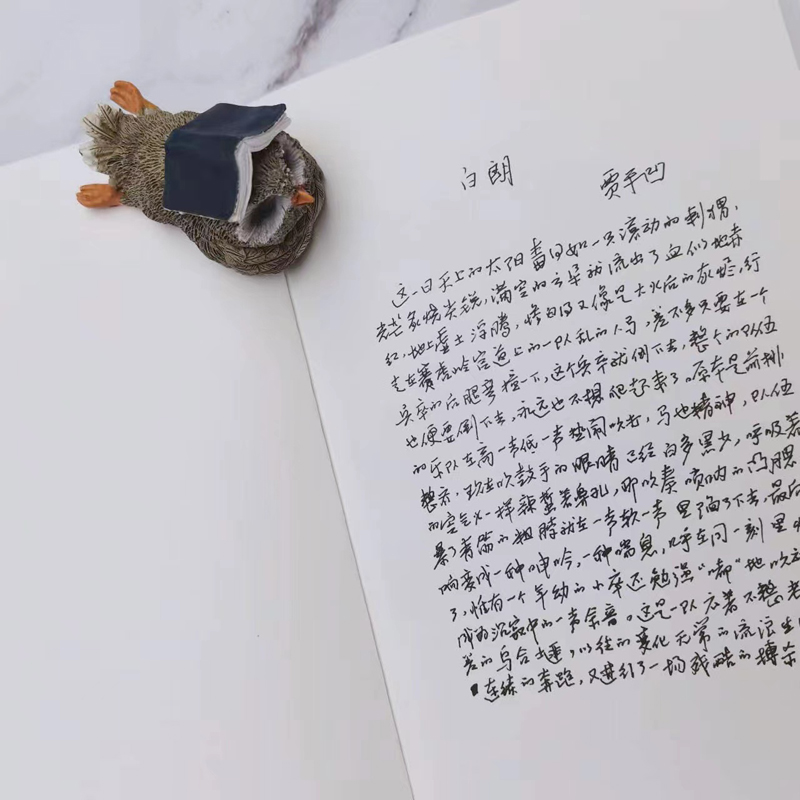 白朗 贾平凹
这一日天上的太阳晕回如一只滚动的刺猬,
光芒炙烧尖锐,满空的云朵就流出了血似地赤
红,地上虚土浮腾,惨白得又像是大火后的灰烬,行
走在赛虎岭官道上的一队乱的人马,差不多只要在一个
兵卒的后腿弯撞一下,这个兵卒就倒下去,整个的队伍
也便要倒下去,永远也不想爬起来了。原本是前排
的乐队在高一声低一声热闹吹打,马也精神,队伍
整齐,现在吹鼓手的眼睛已经白多黑少,呼吸着
的空气火一样辣蜇着鼻孔,那吹奏唢呐的凸腮
暴了青筋的粗脖就在一声软一声里陷了下去,最后
响变成一种呻吟,一种喘息,呼在同一刻里
了,惟有一个年幼的小卒还勉强“嘟”地吹
成的沉寂中的一声余音。这是一队衣着不整
差的乌合,以往的变化无常的流浪生
连续的奔跑,又进行了一场残酷的搏杀